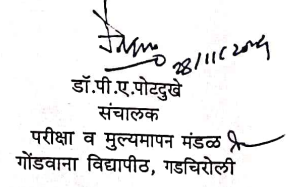 28/11/2024
डॉ.पी.ए.पोटदुखे
संचालक
परीक्षा व मुल्यमापन मंडळ
गोंडवाना विद्यापीठ, गडचिरोली